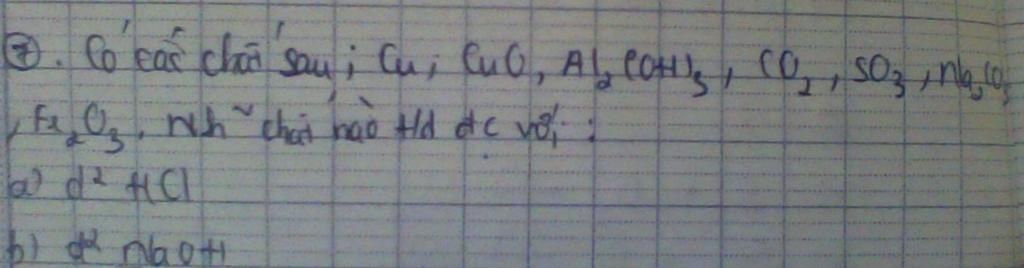 ⑦. Có các chất sau; Cu; CuO, Al₂(OH)₃, CO₂, SO₃, Na₂CO₃
, Fe₂O₃. Nh~ chất nào t/d đc với:
a) d² HCl
b) d² NaOH